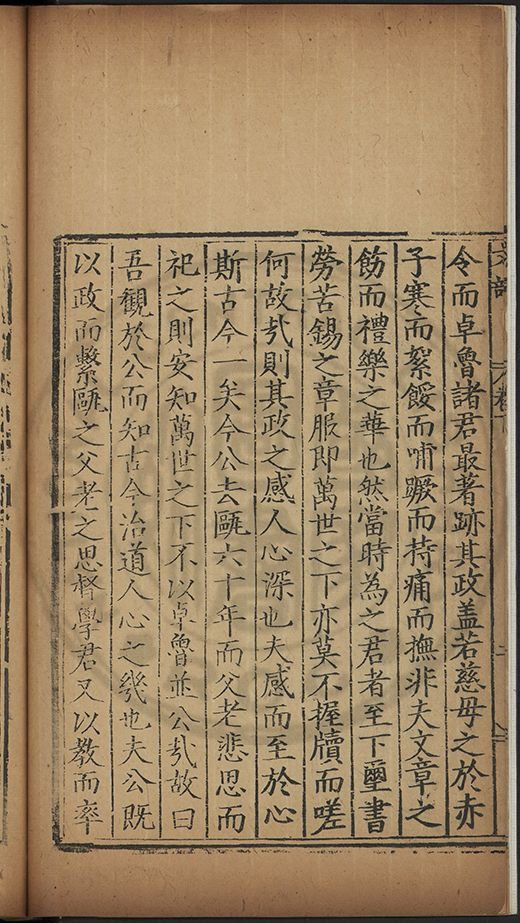 令而卓魯諸君最著跡其政盖若慈母之於赤
子寒而絮餒而哺蹶而持痛而撫非夫文章之
飭而禮樂之華也然當時為之君者至下璽書
勞苦錫之章服即萬世之下亦莫不握牘而嗟
何故㢤則其政之感人心深也夫感而至於心
斯古今一矣今公去甌六十年而父老悲思而
祀之則安知萬世之下不以卓魯並公㢤故曰
吾觀於公而知古今治道人心之幾也夫公既
以政而繫甌之父老之思督學君又以教而率